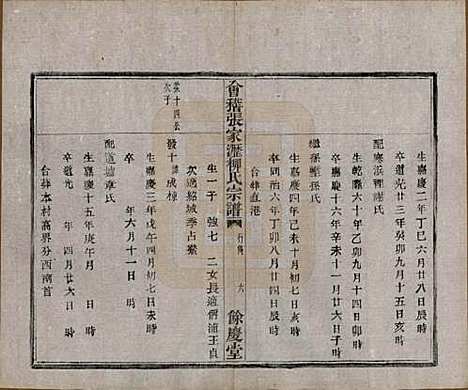 生嘉慶二年丁巳六月廿八日辰時
卒道光廿三年癸卯九月十五日亥時
配寒溪裡謝氏
生乾隆六十年乙卯九月十四日卯時
卒嘉慶十六年辛未十一月廿六日亥時
繼孫孫氏
生嘉慶四年己未十月初六日亥時
卒同治六年丁卯八月廿四日辰時
合葬直港
會稽張家瀝柳氏宗譜
行傳
六
餘慶堂
生一子強七二女長適俏浦王貞
次適紹城季占黨
發十成棟
榮十四長
次子
生嘉慶三年戊午四月初七日未時
卒年六月十一日時
配道墟章氏
生嘉慶十五年庚午月日時
卒道光年四月廿六日時
合葬本村高界分西南首